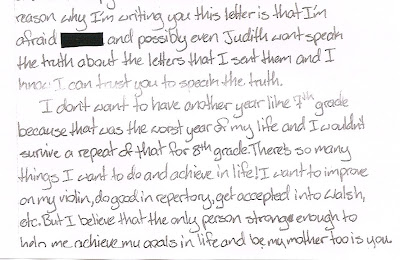 reason why I'm writing you this letter is that I'm
afraid and possibly even Judith wont speak
the truth about the letters that I sent them and I
know I can trust you to speak the truth.
I don't want to have another year like 7th grade
because that was the worst year of my life and I wouldn't
survive a repeat of that for 8th grade. There's so many
things I want to do and achieve in life! I want to improve
on my violin, do good in repertory, get accepted into Walsh,
etc. But I believe that the only person strong enough to
help me achieve my goals in life and be my mother too is you.